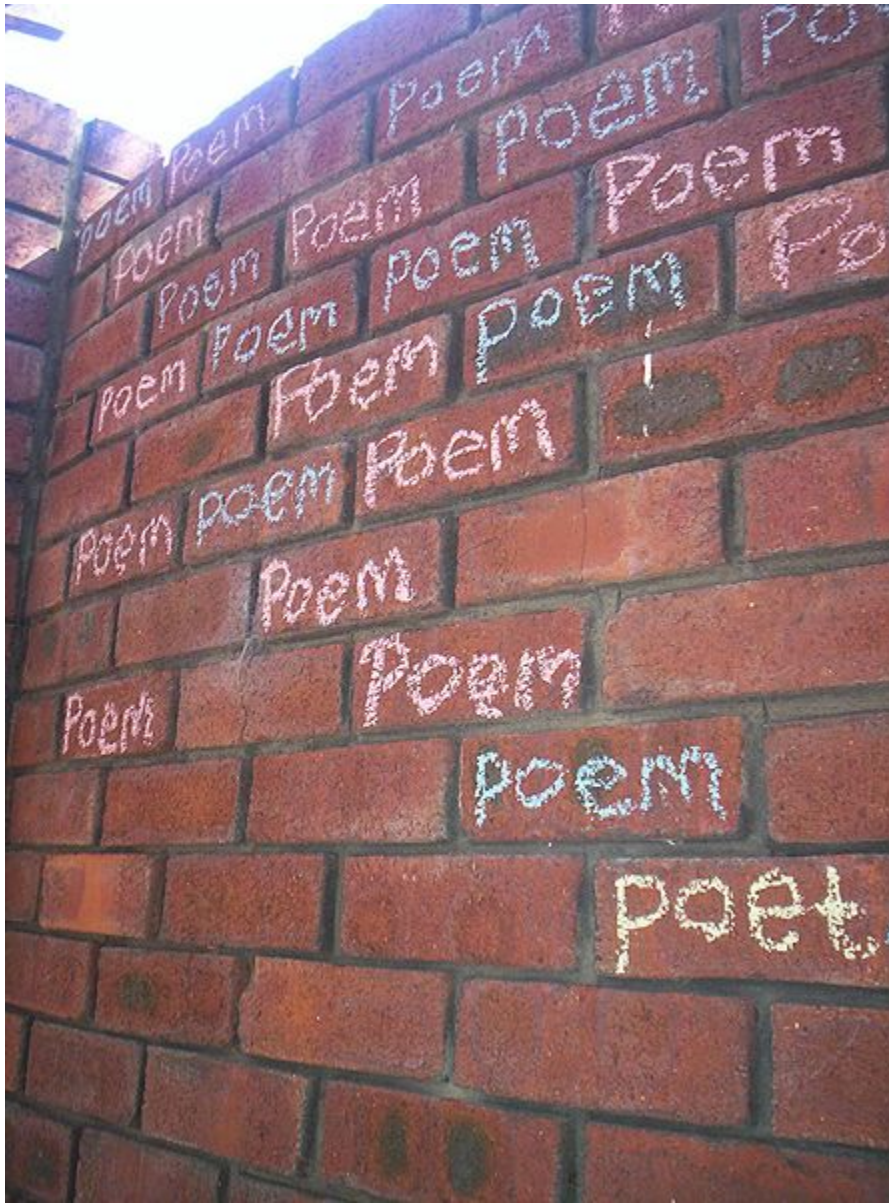 Poem Po
Poem Poem
poem Poem Poem Poem
Poem Poem Po
Poem poem poem
Poem Poem
Poem Poem
poem Poem
Poem
Poem
Poem
poem
poet.